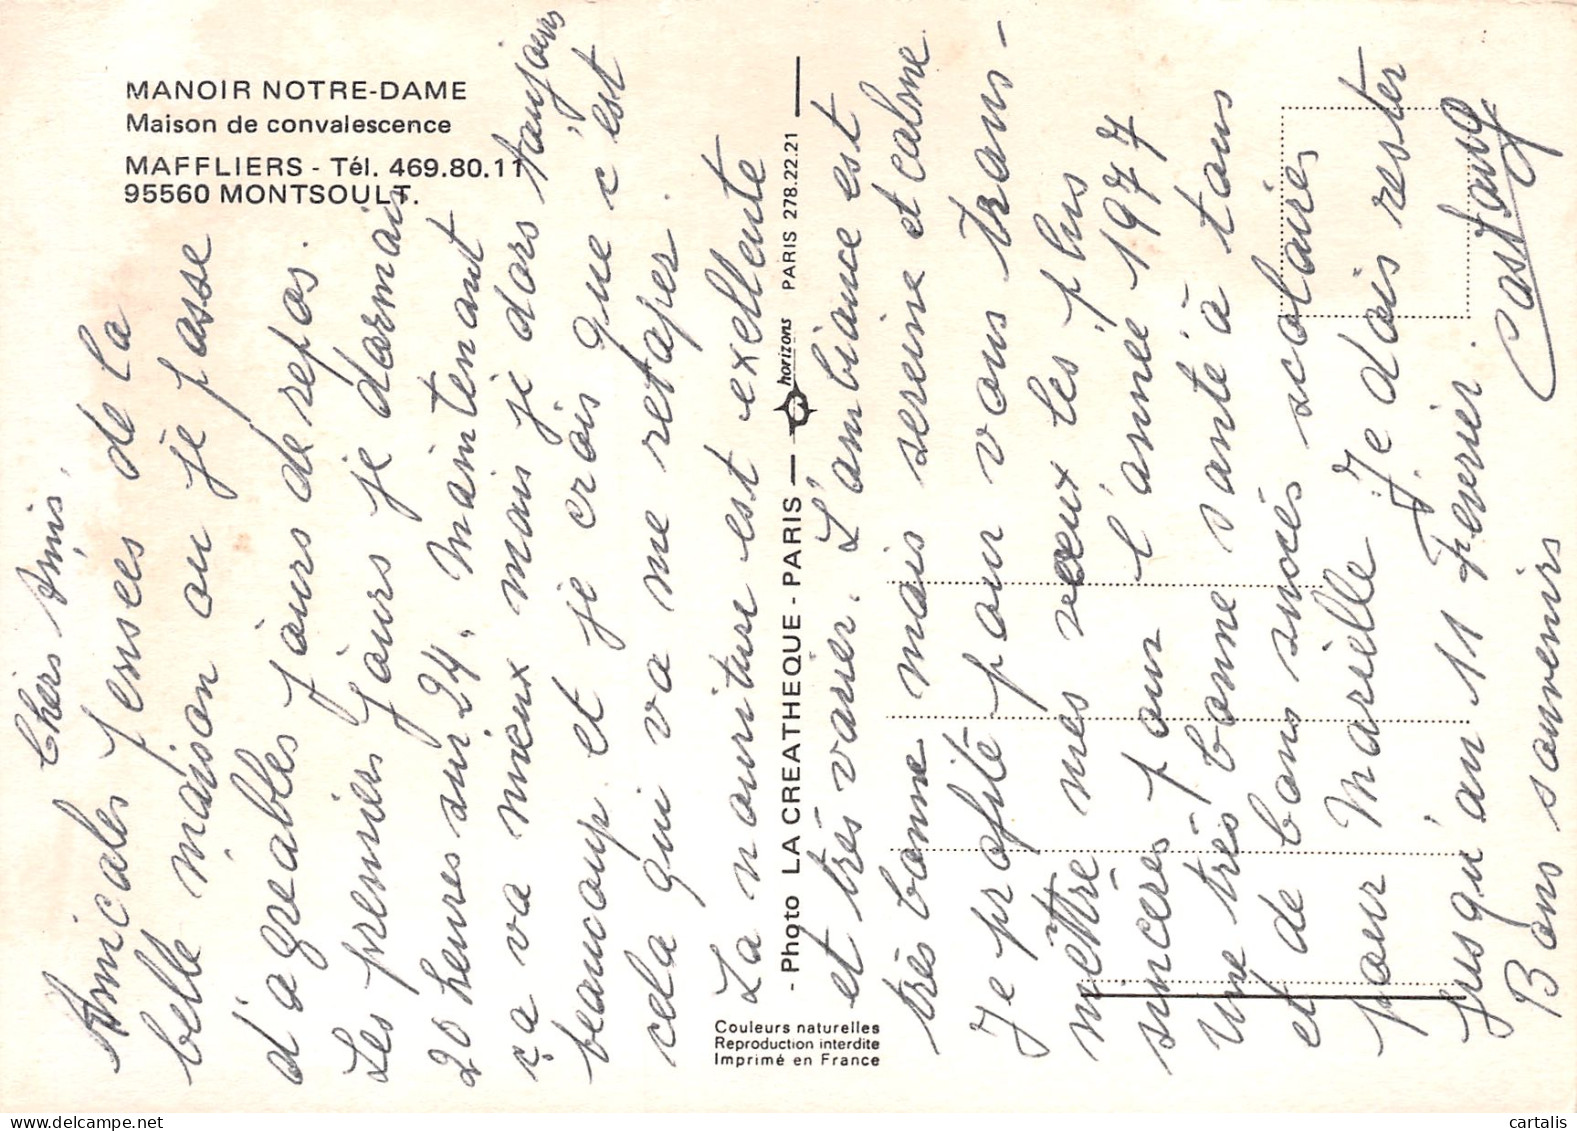 MANOIR NOTRE-DAME
Maison de convalescence
MAFFLIERS - Tél. 469.80.11
95560 MONTSOULT.
Chers Amis,
Amicales pensées de la
belle maison ou je passe
d'agreables jours de repos.
Les premiers jours je dormais
20 heures sur 24. Maintenant
ça va mieux mais je dors toujours
beaucoup. et je crois que c'est
cela qui va me retaper.
La nouriture est exellente
et très varier. L'ambiance est
très bonne mais sereine et calme
Je profite pour vous trans-
mèttre mes vœux les plus
sincères pour l'année 1977
Une très bonne santé à tous
et de bons succés scolaires
pour Marielle. Je dois rester
jusqu'au 11 Fevrier.
Bons souvenirs
- Photo LA CREATHEQUE - PARIS
horizons PARIS 278.22.21
Couleurs naturelles
Reproduction interdite
Imprimé en France
cartalis